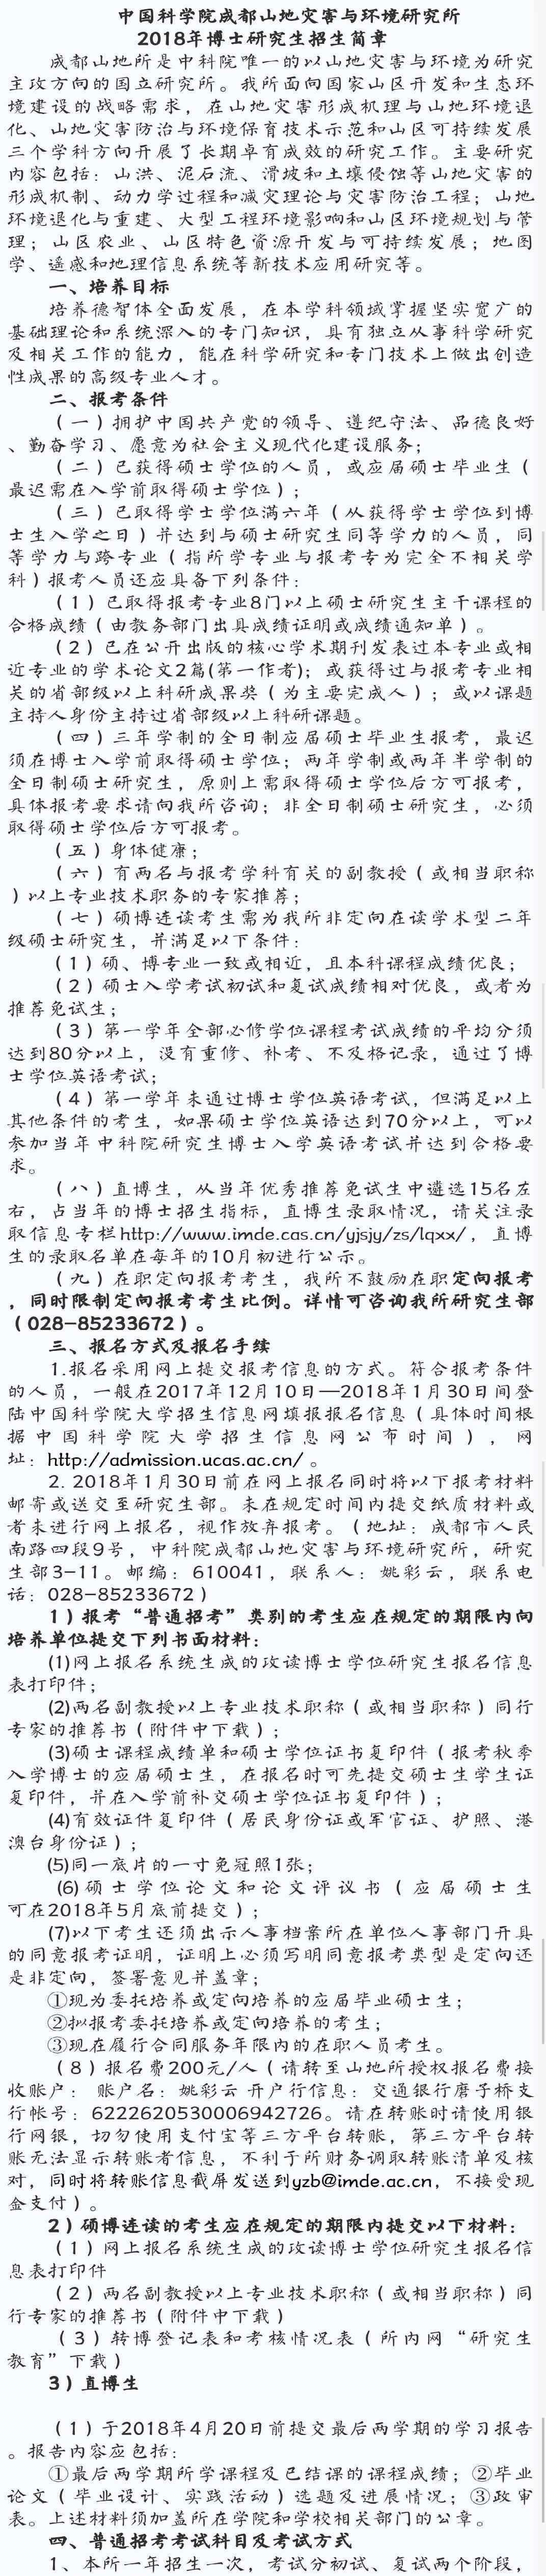 中国科学院成都山地灾害与环境研究所
2018年博士研究生招生简章
成都山地所是中科院唯一的以山地灾害与环境为研究
主攻方向的国立研究所。我所面向国家山区开发和生态环
境建设的战略需求，在山地灾害形成机理与山地环境退
化、山地灾害防治与环境保育技术示范和山区可持续发展
三个学科方向开展了长期卓有成效的研究工作。主要研究
内容包括：山洪、泥石流、滑坡和土壤侵蚀等山地灾害的
形成机制、动力学过程和减灾理论与灾害防治工程；山地
环境退化与重建、大型工程环境影响和山区环境规划与管
理；山区农业、山区特色资源开发与可持续发展；地图
学、遥感和地理信息系统等新技术应用研究等。
一、培养目标
培养德智体全面发展，在本学科领域掌握坚实宽广的
基础理论和系统深入的专门知识，具有独立从事科学研究
及相关工作的能力，能在科学研究和专门技术上做出创造
性成果的高级专业人才。
二、报考条件
（一）拥护中国共产党的领导、遵纪守法、品德良好
、勤奋学习、愿意为社会主义现代化建设服务；
（二）已获得硕士学位的人员，或应届硕士毕业生（
最迟需在入学前取得硕士学位）；
（三）已取得学士学位满六年（从获得学士学位到博
士生入学之日）并达到与硕士研究生同等学力的人员，同
等学力与跨专业（指所学专业与报考专为完全不相关学
科）报考人员还应具备下列条件：
（1）已取得报考专业8门以上硕士研究生主干课程的
合格成绩（由教务部门出具成绩证明或成绩通知单）。
（2）已在公开出版的核心学术期刊发表过本专业或相
近专业的学术论文2篇(第一作者)；或获得过与报考专业相
关的省部级以上科研成果奖（为主要完成人）；或以课题
主持人身份主持过省部级以上科研课题。
（四）三年学制的全日制应届硕士毕业生报考，最迟
须在博士入学前取得硕士学位；两年学制或两年半学制的
全日制硕士研究生，原则上需取得硕士学位后方可报考，
具体报考要求请向我所咨询；非全日制硕士研究生，必须
取得硕士学位后方可报考。
（五）身体健康；
（六）有两名与报考学科有关的副教授（或相当职称
）以上专业技术职务的专家推荐；
（七）硕博连读考生需为我所非定向在读学术型二年
级硕士研究生，并满足以下条件：
（1）硕、博专业一致或相近，且本科课程成绩优良；
（2）硕士入学考试初试和复试成绩相对优良，或者为
推荐免试生；
（3）第一学年全部必修学位课程考试成绩的平均分须
达到80分以上，没有重修、补考、不及格记录，通过了博
士学位英语考试；
（4）第一学年未通过博士学位英语考试，但满足以上
其他条件的考生，如果硕士学位英语达到70分以上，可以
参加当年中科院研究生博士入学英语考试并达到合格要
求。
（八）直博生，从当年优秀推荐免试生中遴选15名左
右，占当年的博士招生指标，直博生录取情况，请关注录
取信息专栏http://www.imde.cas.cn/yjsjy/zs/lqxx/，直博
生的录取名单在每年的10月初进行公示。
（九）在职定向报考考生，我所不鼓励在职定向报考
，同时限制定向报考考生比例。详情可咨询我所研究生部
（028-85233672）。
三、报名方式及报名手续
1.报名采用网上提交报考信息的方式。符合报考条件
的人员，一般在2017年12月10日—2018年1月30日间登
陆中国科学院大学招生信息网填报报名信息（具体时间根
据中国科学院大学招生信息网公布时间），网
址：http://admission.ucas.ac.cn/ 。
2. 2018年1月30日前在网上报名同时将以下报考材料
邮寄或送交至研究生部。未在规定时间内提交纸质材料或
者未进行网上报名，视作放弃报考。（地址：成都市人民
南路四段9号，中科院成都山地灾害与环境研究所，研究
生部3-11。邮编：610041，联系人：姚彩云，联系电
话：028-85233672）
1）报考“普通招考”类别的考生应在规定的期限内向
培养单位提交下列书面材料：
(1)网上报名系统生成的攻读博士学位研究生报名信息
表打印件；
(2)两名副教授以上专业技术职称（或相当职称）同行
专家的推荐书（附件中下载）；
(3)硕士课程成绩单和硕士学位证书复印件（报考秋季
入学博士的应届硕士生，在报名时可先提交硕士生学生证
复印件，并在入学前补交硕士学位证书复印件）；
(4)有效证件复印件（居民身份证或军官证、护照、港
澳台身份证）；
(5)同一底片的一寸免冠照1张；
(6)硕士学位论文和论文评议书（应届硕士生
可在2018年5月底前提交）；
(7)以下考生还须出示人事档案所在单位人事部门开具
的同意报考证明，证明上必须写明同意报考类型是定向还
是非定向，签署意见并盖章；
①现为委托培养或定向培养的应届毕业硕士生；
②拟报考委托培养或定向培养的考生；
③现在履行合同服务年限内的在职人员考生。
（8）报名费200元/人（请转至山地所授权报名费接
收账户： 账户名：姚彩云 开户行信息：交通银行磨子桥支
行帐号：6222620530006942726。请在转账时请使用银
行网银，切勿使用支付宝等三方平台转账，第三方平台转
账无法显示转账者信息，不利于所财务调取转账清单及核
对，同时将转账信息截屏发送到yzb@imde.ac.cn，不接受现
金支付）。
2）硕博连读的考生应在规定的期限内提交以下材料：
（1）网上报名系统生成的攻读博士学位研究生报名信
息表打印件
（2）两名副教授以上专业技术职称（或相当职称）同
行专家的推荐书（附件中下载）
（3）转博登记表和考核情况表（所内网“研究生
教育”下载）
3）直博生
（1）于2018年4月20日前提交最后两学期的学习报告
。报告内容应包括：
①最后两学期所学课程及已结课的课程成绩；②毕业
论文（毕业设计、实践活动）选题及进展情况；③政审
表。上述材料须加盖所在学院和学校相关部门的公章。
四、普通招考考试科目及考试方式
1、本所一年招生一次，考试分初试、复试两个阶段，